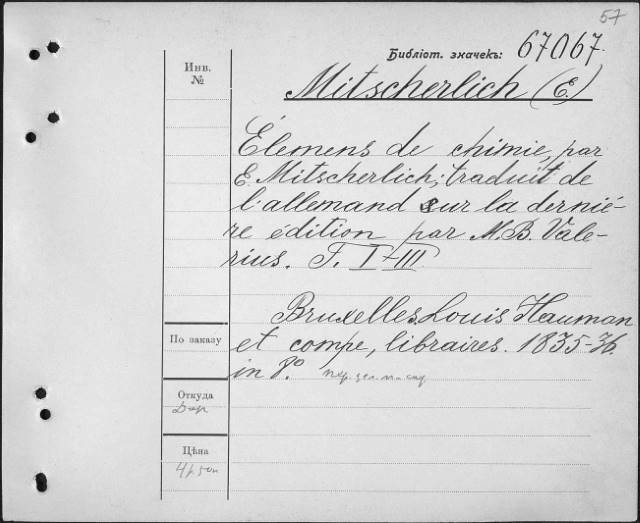 57
Библіот. значекъ: 67067.
Инв.
№
Mitscherlich (E.)
Élemens de chimie, par
E. Mitscherlich; traduit de
l'allemand sur la derniè-
re édition par M. B. Vale-
rius. T. I-III
Bruxelles. Louis Hauman
et compe, libraires. 1835-36.
in 8º.
По заказу
Откуда
Дар
Цѣна